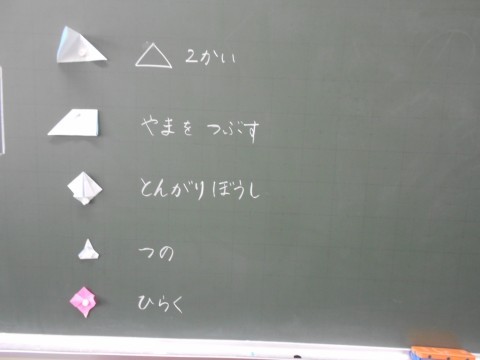 △ 2かい
やまを つぶす
とんがりぼうし
つの
ひらく